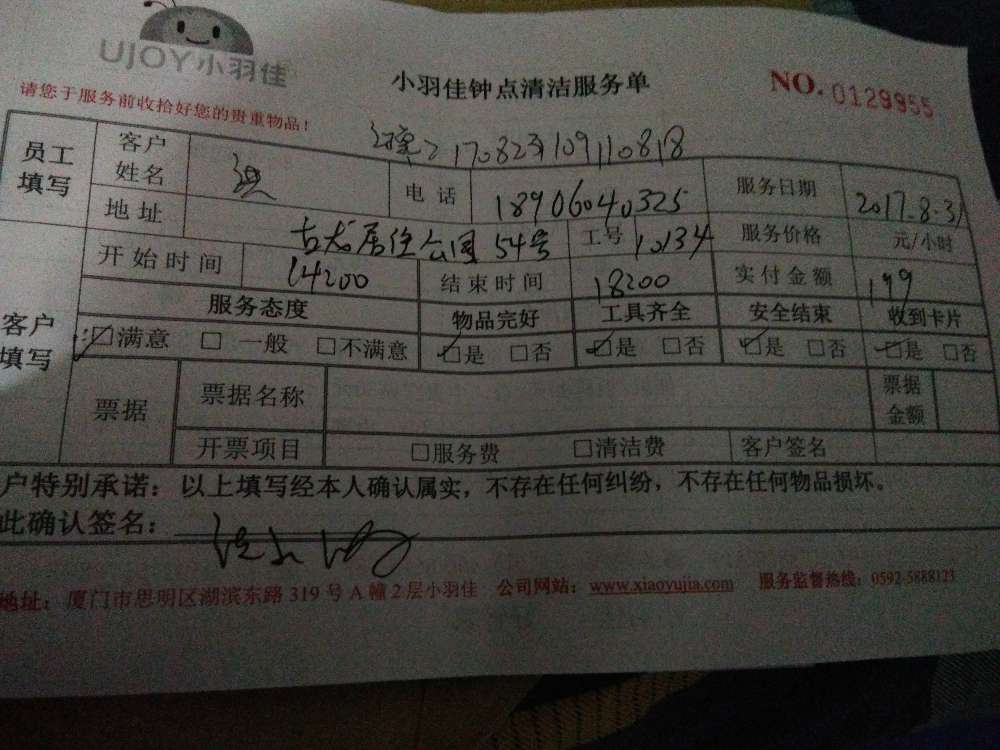 UJOY小羽佳
小羽佳钟点清洁服务单
NO. 0129955
请您于服务前收拾好您的贵重物品!
170823109110818
员工填写
客户姓名
电话 18906040325
服务日期 2017.8.31
地址 古龙居住公园 54号
工号 10134
服务价格 元/小时
客户填写
开始时间 14200
结束时间 18200
实付金额 199
服务态度 物品完好 工具齐全 安全结束 收到卡片
☑满意 □一般 □不满意 ☑是 □否 ☑是 □否 ☑是 □否 ☑是 □否
票据 票据名称 票据金额
开票项目 □服务费 □清洁费 客户签名
户特别承诺：以上填写经本人确认属实，不存在任何纠纷，不存在任何物品损坏。
此确认签名：
地址：厦门市思明区湖滨东路319号A幢2层小羽佳 公司网站：www.xiaoyujia.com 服务监督热线：0592-5888123